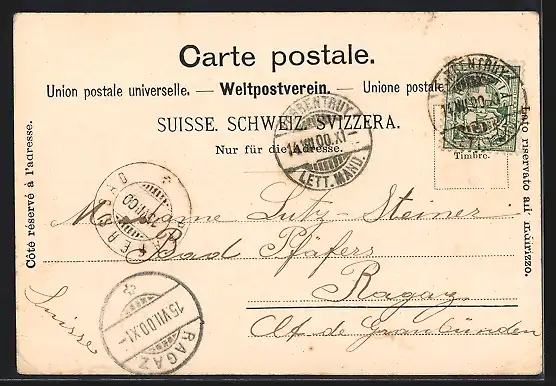 Carte postale.
Union postale universelle. — Weltpostverein. — Unione postale
SUISSE. SCHWEIZ. SVIZZERA.
Nur für die Adresse.
Côté réservé à l'adresse.
Lato riservato all' indirizzo.
Timbre.
PORRENTRUY
14.VII.00.XI-
LETT. MAND.
PORRENTRUY
14.VII.00
15.VII.00
RAGAZ
15.VII.00.XI-
Madame Lutz-Steiner
Bad Pfäfers
Ragaz
Ct. de Graubünden
Suisse